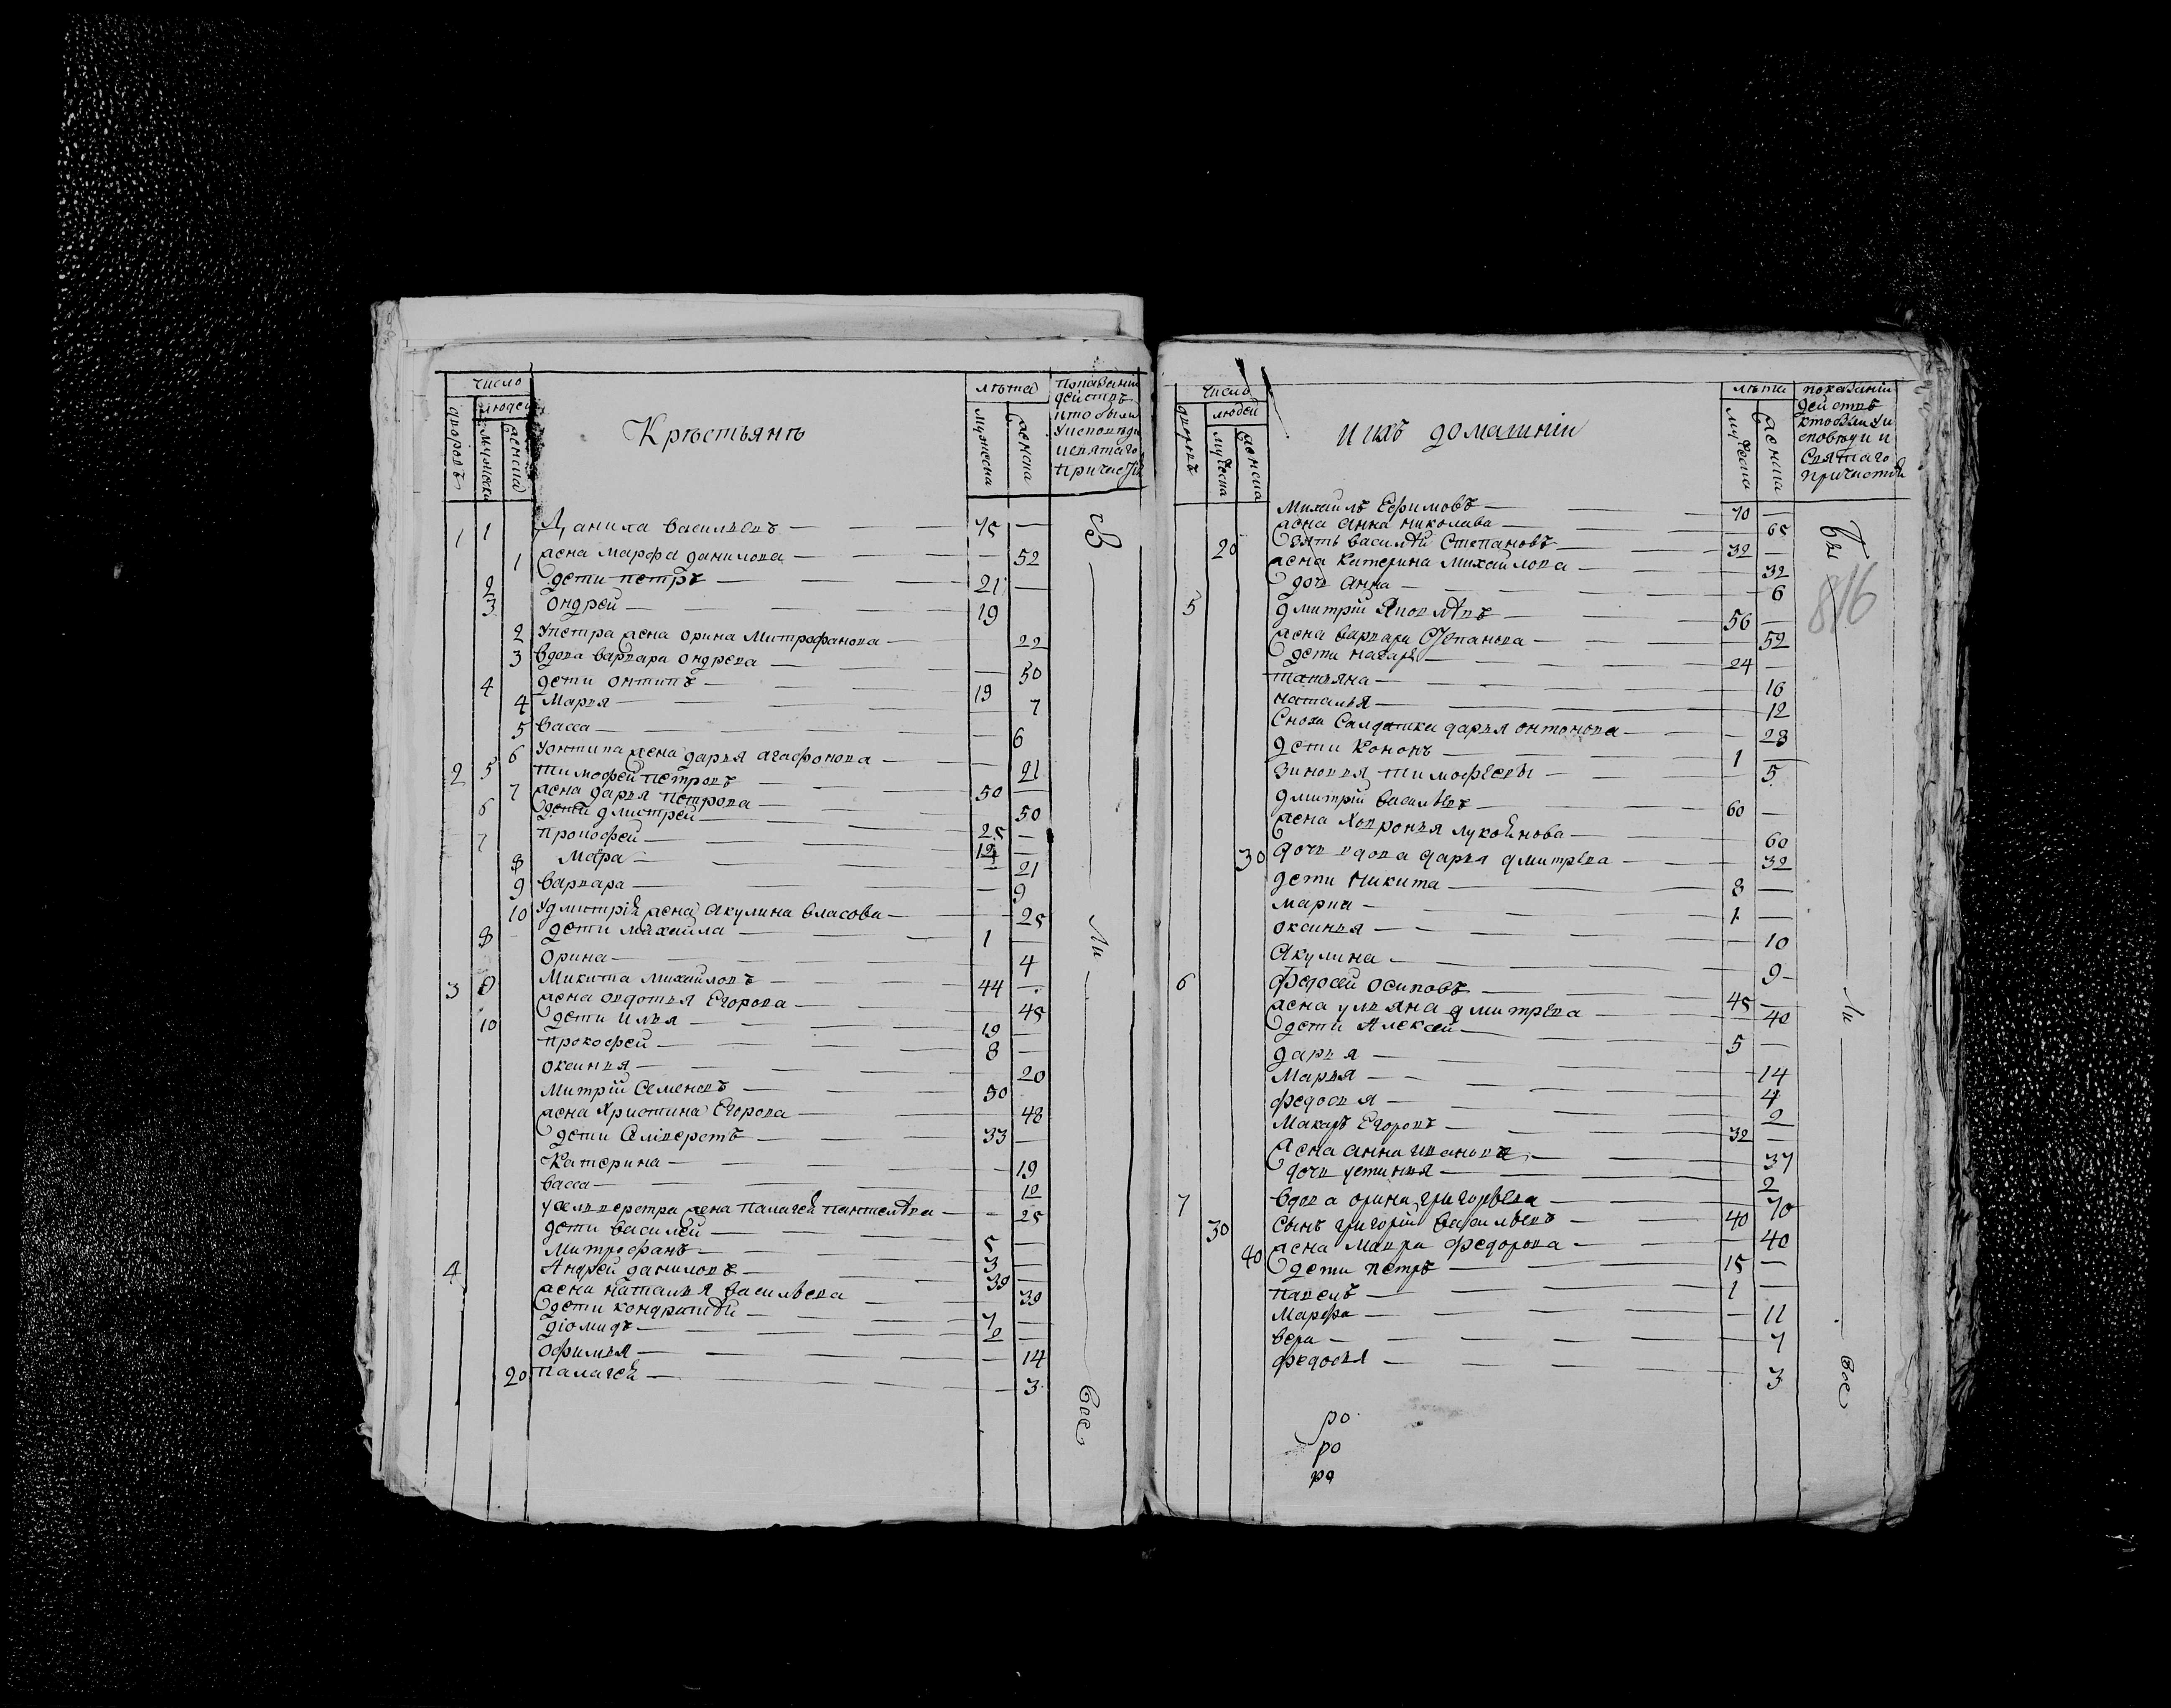 число
людей
дворовъ
мужска
женска
Крѣстьянъ
лѣта
мужеска
женска
показаніи
действъ
кто были
у исповѣди
и святаго
причастия
1 1 Данила Васильевъ 75
1 жена Марфа Данилова 52
2 дети Петръ 21
3 Ондрей 19
2 У Петра жена Орина Митрофанова 22
3 Вдова Варвара Ондрева 50
4 дети Онтипъ 19
4 Марья 7
5 Васса 6
6 У Онтипа жена Дарья Агафонова 21
2 5 Тимофей Петровъ 50
7 жена Дарья Петрова 50
6 дети Дмитрей 25
7 Прокофей 12
8 Мавра 21
9 Варвара 9
10 У Дмитрія жена Акулина Власова 25
8 дети Михаила 1
Орина 4
3 9 Микита Михайловъ 44
жена Овдотья Егорова 45
10 дети Илья 19
Прокофей 8
Оксинья 20
Митрій Семеновъ 50
жена Христина Егорова 48
дети Селиверстъ 33
Катерина 19
Васса 12
У Селиверстра жена Палагея Пантелѣва 25
дети Василей 5
Митрофанъ 3
4 Андрей Даниловъ 39
жена Наталья Васильева 39
дети Кондратей 7
Діомидъ 2
Офимья 14
20 Палагея 3
Ли
Все
число
людей
дворовъ
мужеска
женска
и ихъ домашніи
лѣта
мужеска
женска
показаніи
действъ
кто были у и
споведи и
святаго
причастия
Михаилъ Ефимовъ 70
жена Анна Николава 65
20 Зять Василѣй Степановъ 32
жена Катерина Михаилова 32
дочь Анна 6
5 Дмитрій Яковлѣвъ 56
жена Варвара Степанова 52
дети Назаръ 24
Татьяна 16
Наталья 12
Сноха Салдатка Дарья Онтонова 28
дети Кононъ 1
Зиновья Тимофѣевы 5
Дмитрій Васильевъ 60
жена Ховронья Лукоянова 60
30 дочь вдова Дарья Дмитрѣва 32
дети Никита 8
Марка 1
Оксинья 10
Акулина 9
6 Федосей Осиповъ 45
жена Ульяна Дмитрѣва 40
дети Алексей 5
Дарья 14
Марья 4
Федосья 2
Макаръ Егоровъ 32
жена Анна Иванова 37
дочь Устинья 2
7 Вдова Орина Григорьева 70
30 Сынъ Григорій Васильевъ 40
40 жена Мавра Федорова 40
дети Петръ 15
Павелъ 1
Марфа 11
Вера 7
Федосья 3
бы
816
Ли
Все
ро
ро
ро